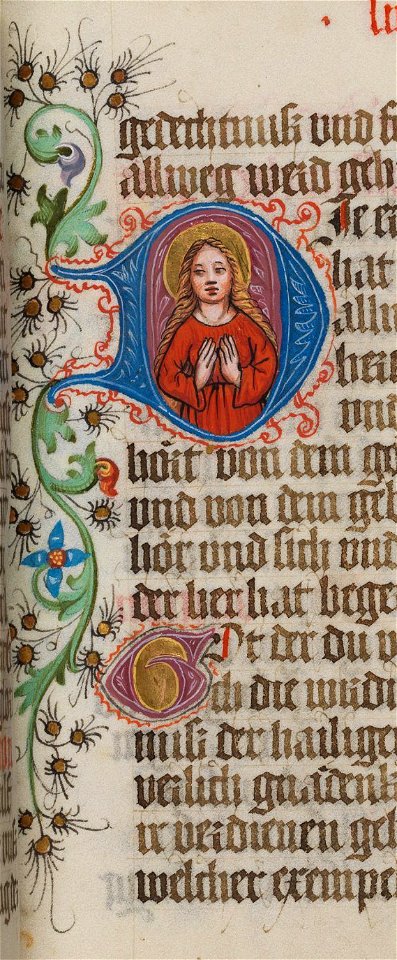 gedechtnuß vnd
allweg werd geh
Die er
hat
allm
herr
vnd
hört von dem ge
vnd von dem geb
hör vnd sich vnd
der her hat bege
Got der du
dich die wirdi
nuß der hailige
verlich gnädenk
ir verdienen geb
welcher exempe